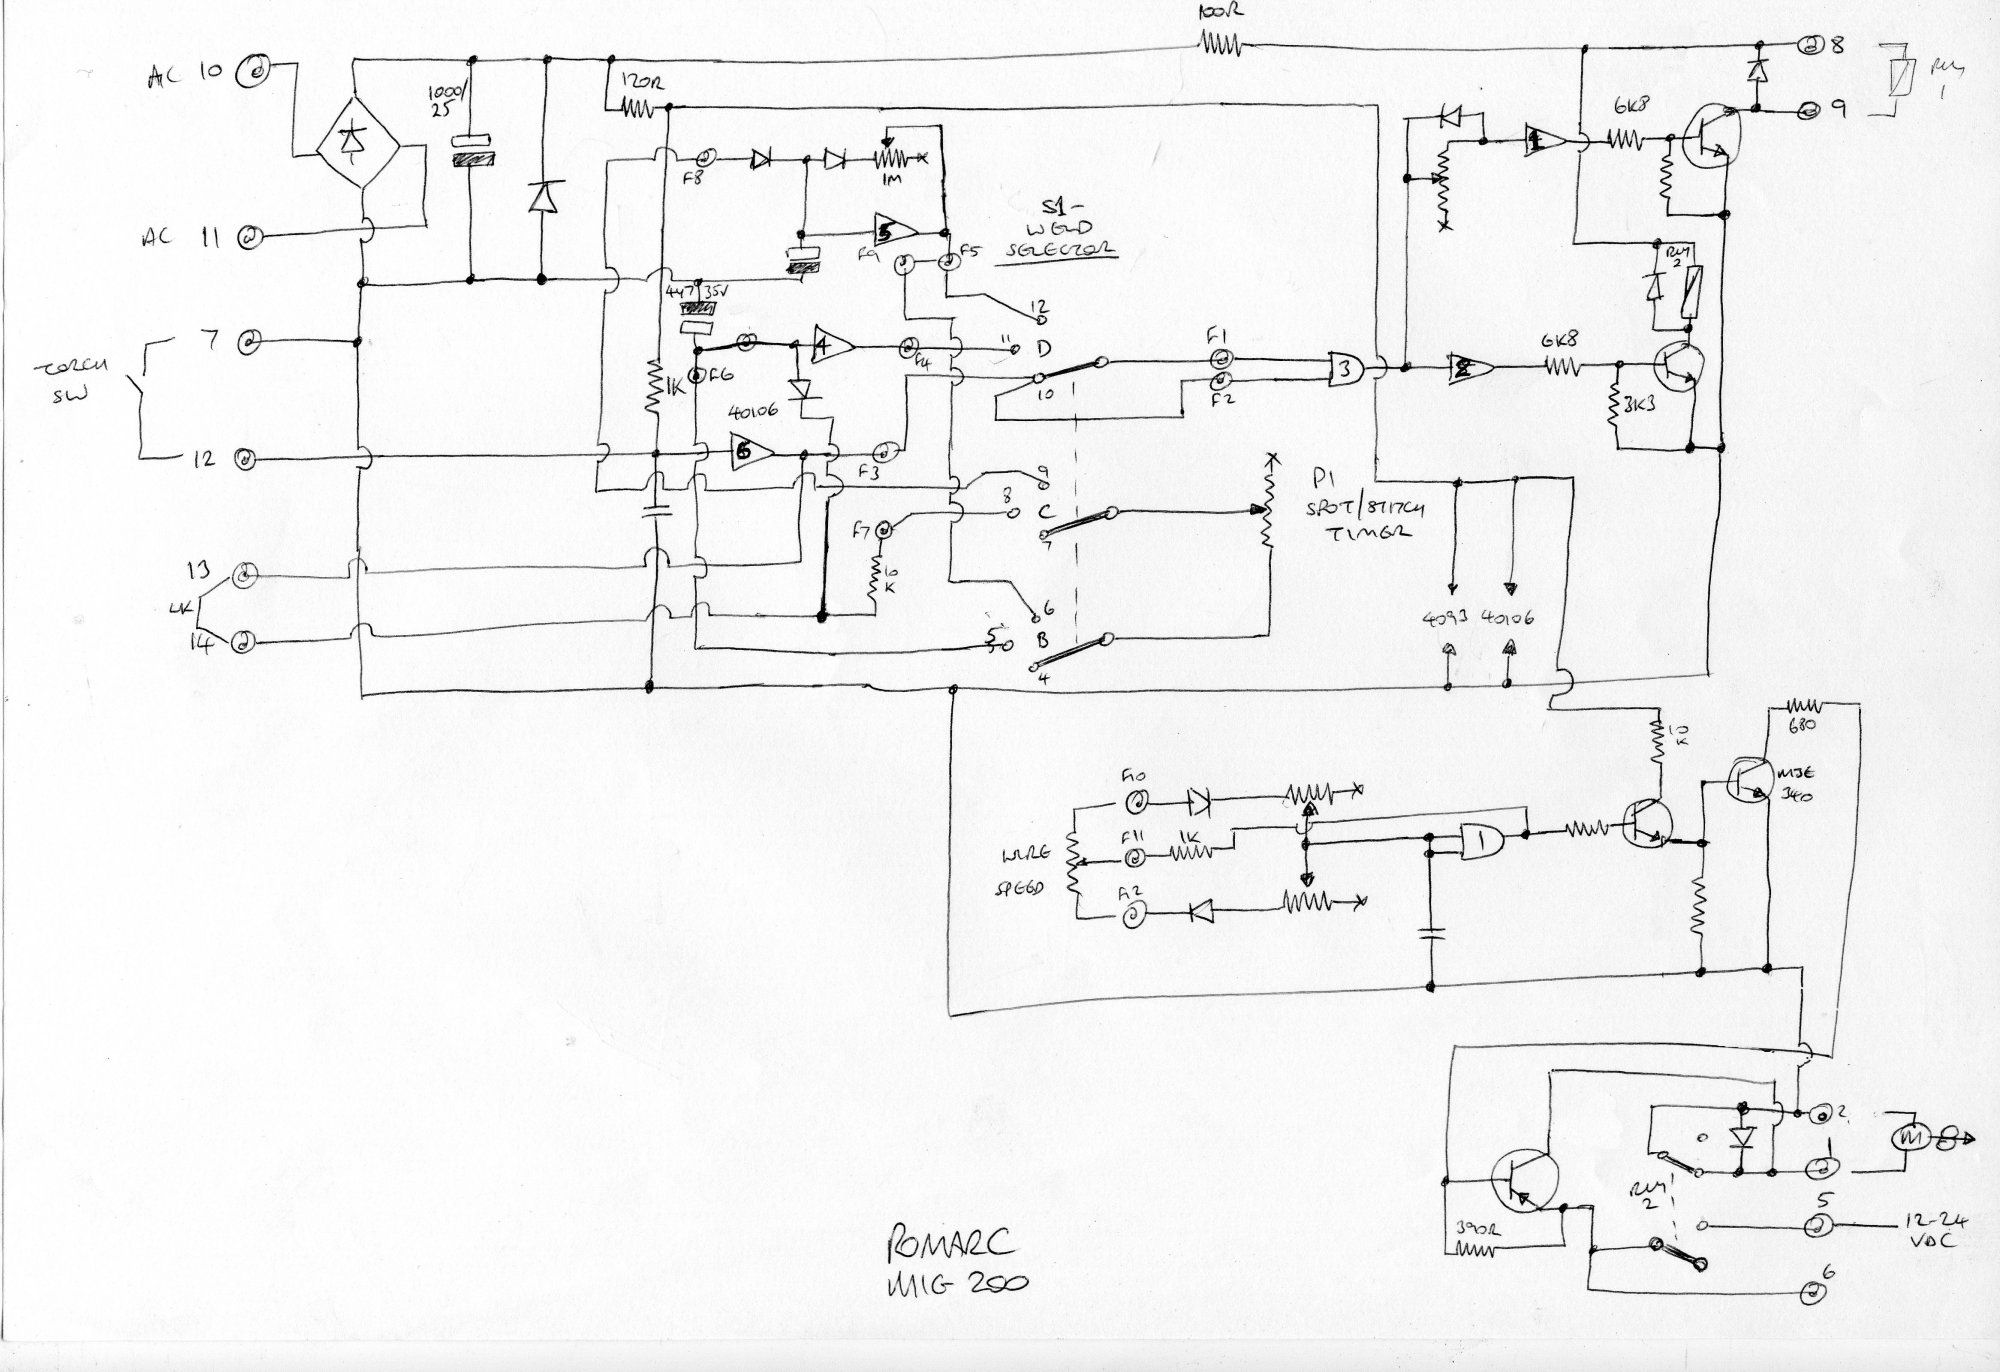 100R
AC 10
8
RLY
1
1000/
25
120R
6K8
9
F8
1M
AC 11
5
S1-
WELD
SELECTOR
F9
F5
RLY
2
447 35V
12
7
4
F4
11
D
F1
3
2
6K8
TORCH
SW
1K
F6
10
F2
3K3
40106
12
6
F3
9
8
C
7
P1
SPOT/STITCH
TIMER
F7
13
10
K
LK
14
6
5
B
4
4093
40106
680
10
K
F10
MJE
340
F11
1K
1
WIRE
SPEED
F12
2
M
1
RLY
2
5
390R
12-24
VDC
6
ROMARC
MIG 200